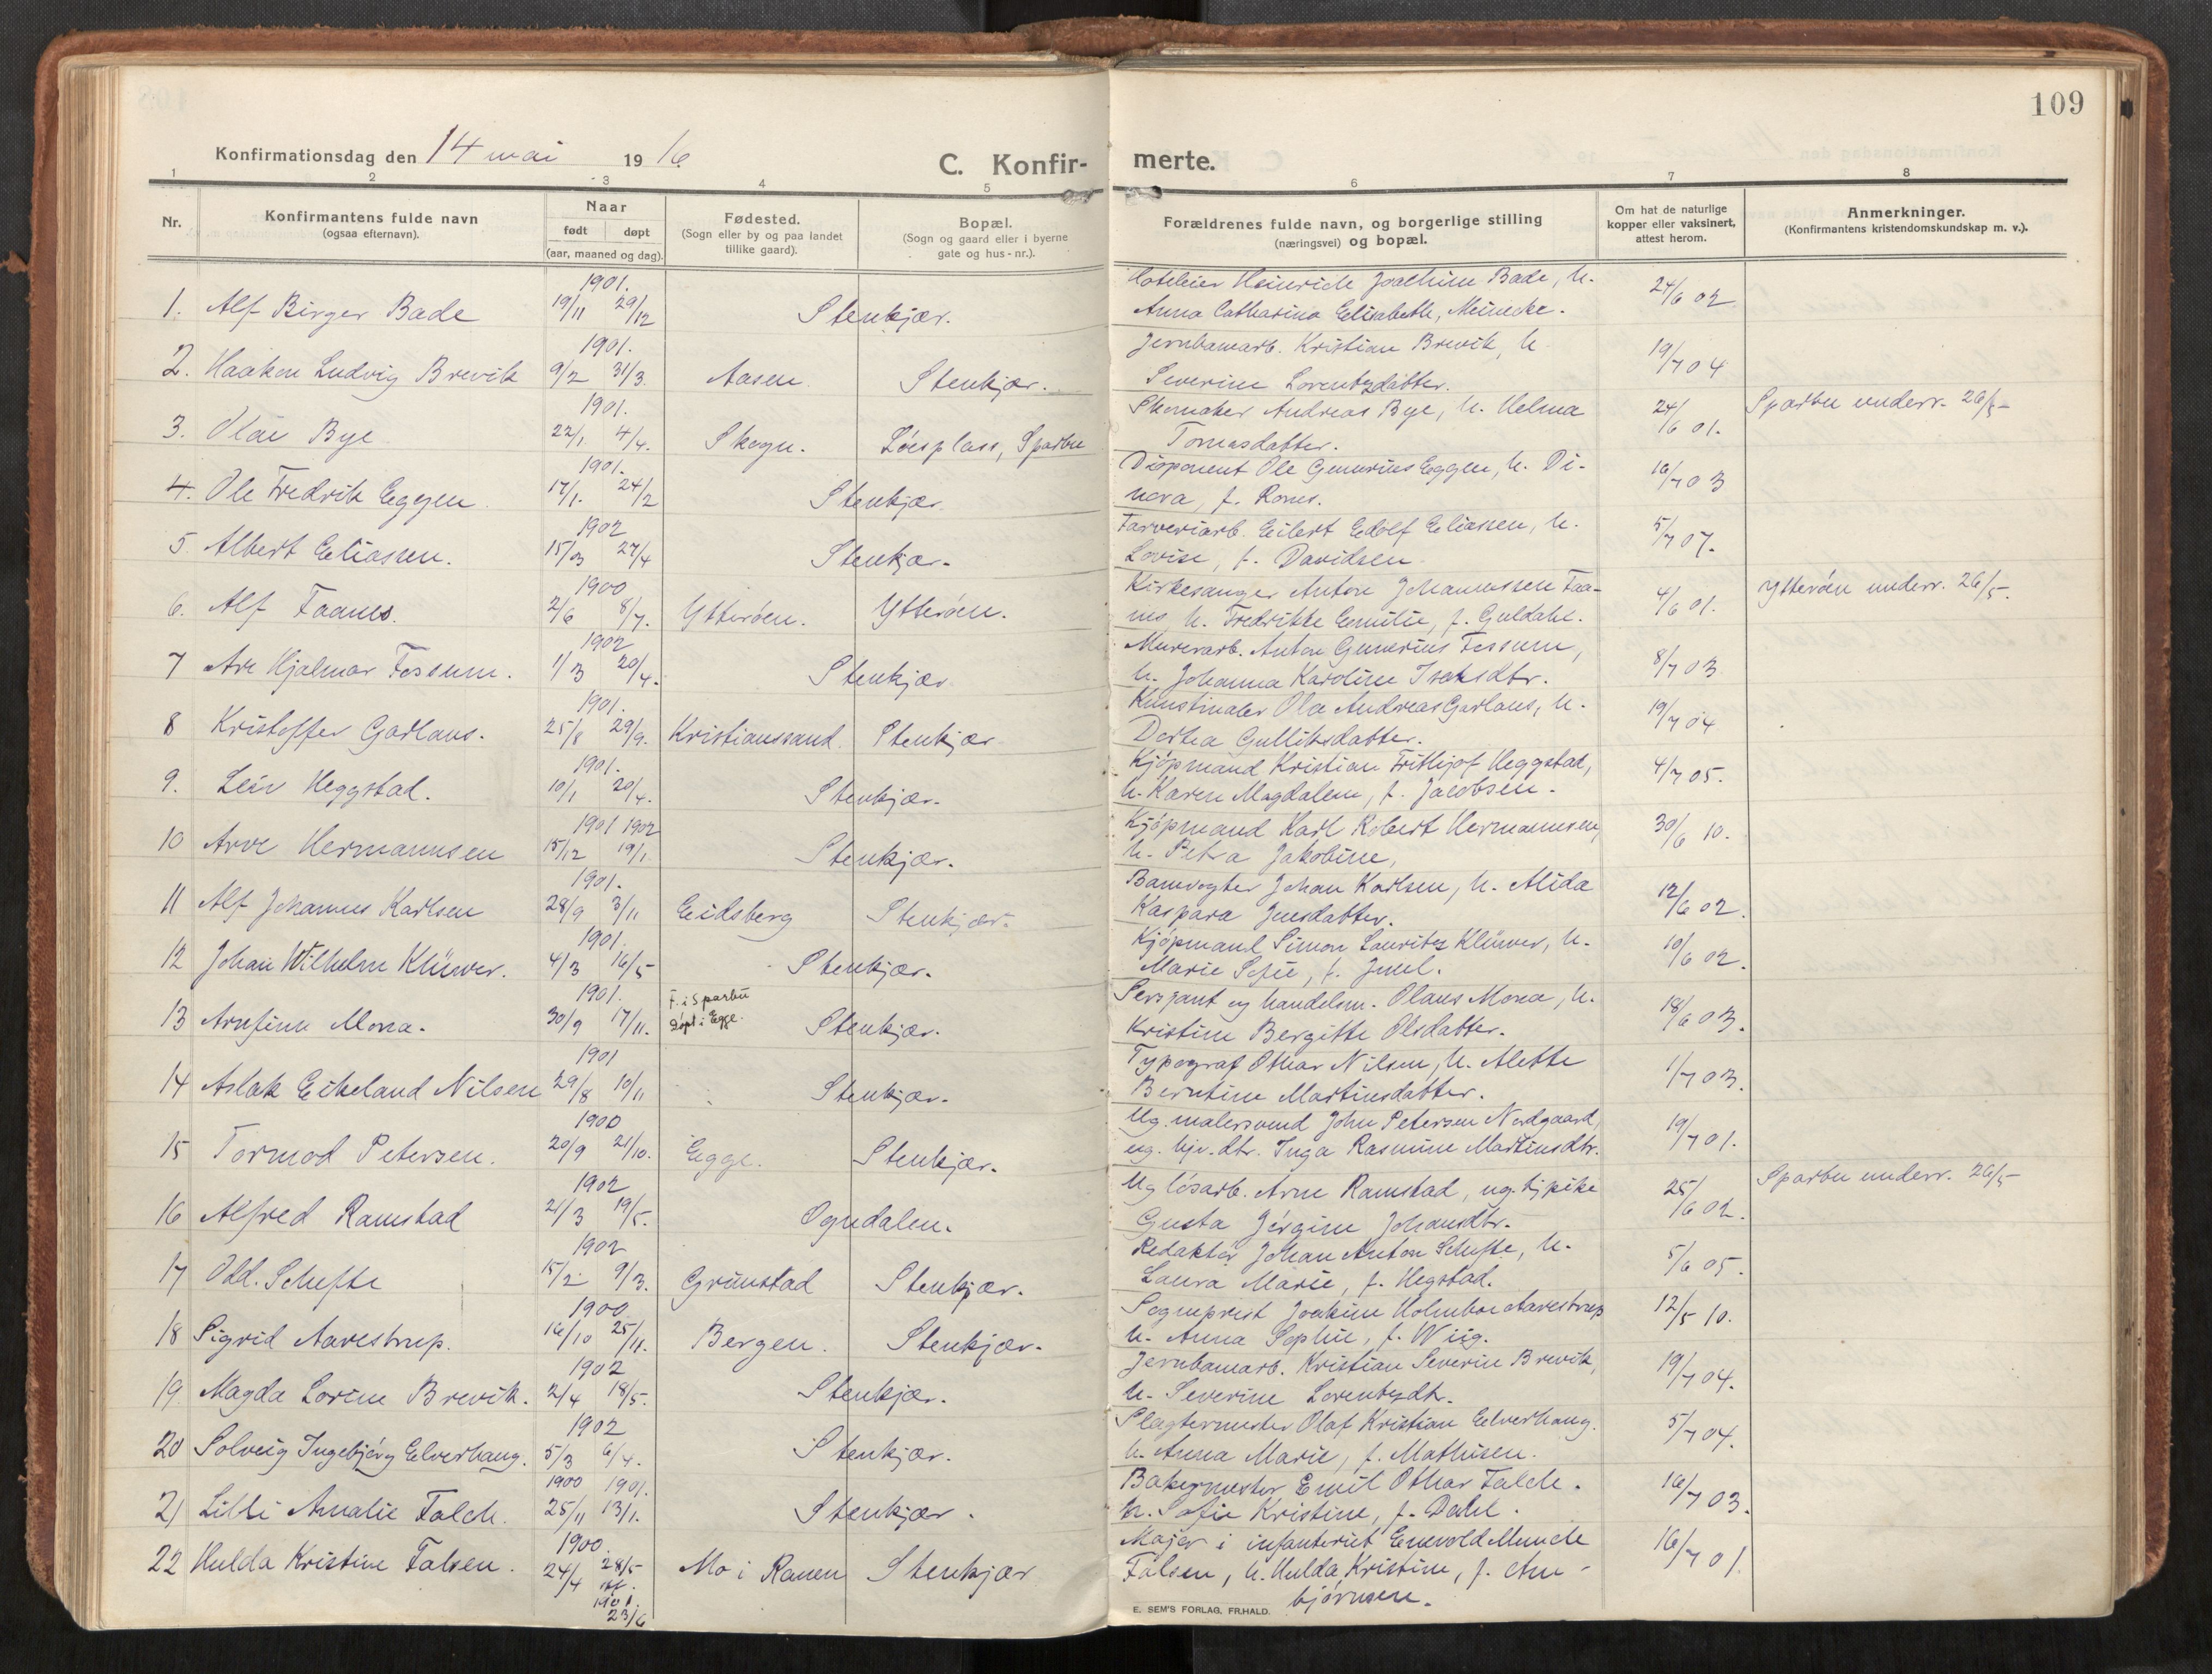 109
Konfirmationsdag den 14 mai 1916
C. Konfirmerte.
1 2 3 4 5 6 7 8
Nr.
Konfirmantens fulde navn
(ogsaa efternavn).
Naar
født døpt
(aar, maaned og dag).
Fødested.
(Sogn eller by og paa landet
tillike gaard).
Bopæl.
(Sogn og gaard eller i byerne
gate og hus-nr.).
Forældrenes fulde navn, og borgerlige stilling
(næringsvei) og bopæl.
Om hat de naturlige
kopper eller vaksinert,
attest herom.
Anmerkninger.
(Konfirmantens kristendomskundskap m. v.).
1. Alf Birger Bade 1901. 19/11 29/12 Stenkjær. Hoteleier Heinrich Joachim Bade, h. 24/6 02
Anna Catharina Elisabeth, Meinecke.
2. Haakon Ludvig Brevik 1901. 9/2 31/3. Aasen. Stenkjær. Jernbanearb. Kristian Brevik, h. 19/7 04
Severine Lorentzdatter.
3. Olai Bye 1901. 22/1 4/4. Skogn. Løesplass, Sparbu Skomaker Andreas Bye, h. Helma 24/6 01. Sparbu underr. 26/5-
Tomasdatter.
4. Ole Fredrik Eggen 1901. 17/1. 24/2 Stenkjær. Disponent Ole Gunerius Eggen, h. Di- 16/7 03
nora, f. Romes.
5. Albert Eliassen. 1902 15/03 27/4 Stenkjær. Farveriarb. Eilert Edolf Eliassen, h. 5/7 07.
Lovise, f. Davidsen
6. Alf Faanes. 1900 2/6 8/7. Ytterøen. Ytterøen. Kirkesanger Anton Johannessen Faa- 4/6 01. Ytterøen underr. 26/5-
nes, h. Fredrikke Emilie, f. Guldahl.
7 Are Hjalmar Fossum. 1902 1/3 20/4. Stenkjær Murerarb. Anton Gunerius Fossum, 8/7 03
h. Johanna Karoline Isaksdtr.
8 Kristoffer Garlaus. 1901. 25/8 29/9. Kristianssand. Stenkjær Kunstmaler Ola Andreas Garlaus, h. 19/7 04
Dortea Gulliksdatter.
9. Leiv Heggstad. 1901. 10/1 20/4. Stenkjær. Kjøpmand Kristian Frithjof Heggstad, 4/7 05.
h. Karen Magdalena, f. Jacobsen.
10 Arve Hermannsen 1901 1902 15/12 19/1. Stenkjær. Kjøpmand Karl Robert Hermannsen, 30/6 10.
h. Petra Jakobine,
11 Alf Johannes Karlsen 1901. 28/9 3/11 Eidsberg Stenkjær. Banevogter Johan Karlsen, h. Alida 12/6 02.
Kaspara Jensdatter.
12 Johan Wilhelm Klüwer. 1901. 4/3 16/5 Stenkjær. Kjøpmand Simon Lauritz Klüwer, h. 10/6 02.
Marie Sofie, f. Juul.
13 Arnfinn Mona. 1901. 30/9 17/11. F. i Sparbu Døpt i Egge. Stenkjær. Sersjant og handelsm. Olaus Mona, h. 18/6 03.
Kristine Bergitte Olsdatter.
14 Aslak Eikeland Nilsen 1901 29/8 10/11 Stenkjær. Typograf Othar Nilsen, h. Alette 1/7 03.
Berntine Martinsdatter.
15 Tormod Petersen. 1900 20/9 21/10. Egge. Stenkjær. Ug. malersvend John Petersen Nordgaard, 19/7 01.
ug. hjv. dtr. Inga Rasmine Martinsdtr.
16 Alfred Ramstad 1902 21/3 19/5. Ogndalen. Ug. løsarb. Arne Ramstad, ug. tj.pike 25/6 02. Sparbu underr. 26/5
Gusta Jørgine Johansdtr.
17 Odd. Schefte 1902 15/2 9/3. Grimstad Stenkjær. Redaktør Johan Anton Schefte, h. 5/6 05.
Laura Marie, f. Hegstad.
18 Sigrid Aavestrup. 1900 16/10 25/11. Bergen. Stenkjær. Sogneprest Joakim Holmboe Aavestrup 12/5 10.
h. Anna Sophie, f. Wiig.
19 Magda Lorine Brevik. 1902 2/4 18/5. Stenkjær. Jernbanearb. Kristian Severin Brevik, 19/7 04.
h. Severine Lorentzdtr.
20 Solveig Ingebjørg Elverhaug. 1902 5/3 6/4. Stenkjær. Slagtermester Olaf Kristian Elverhaug. 5/7 04.
h. Anna Marie, f. Mathisen.
21 Lilli Amalie Falch. 1900 1901. 25/11 13/1. Stenkjær. Bakermester Emil Othar Falch. 16/7 03.
h. Sofie Kristine, f. Dahl.
22 Hulda Kristine Falsen. 1900. 24/4 28/5 1901. 23/6 Mo i Ranen Stenkjær Major i infanteriet Enevold Munch 16/7 01.
Falsen, h. Hulda Kristine, f. Arn-
bjørnsen.
E. SEM'S FORLAG, FR.HALD.